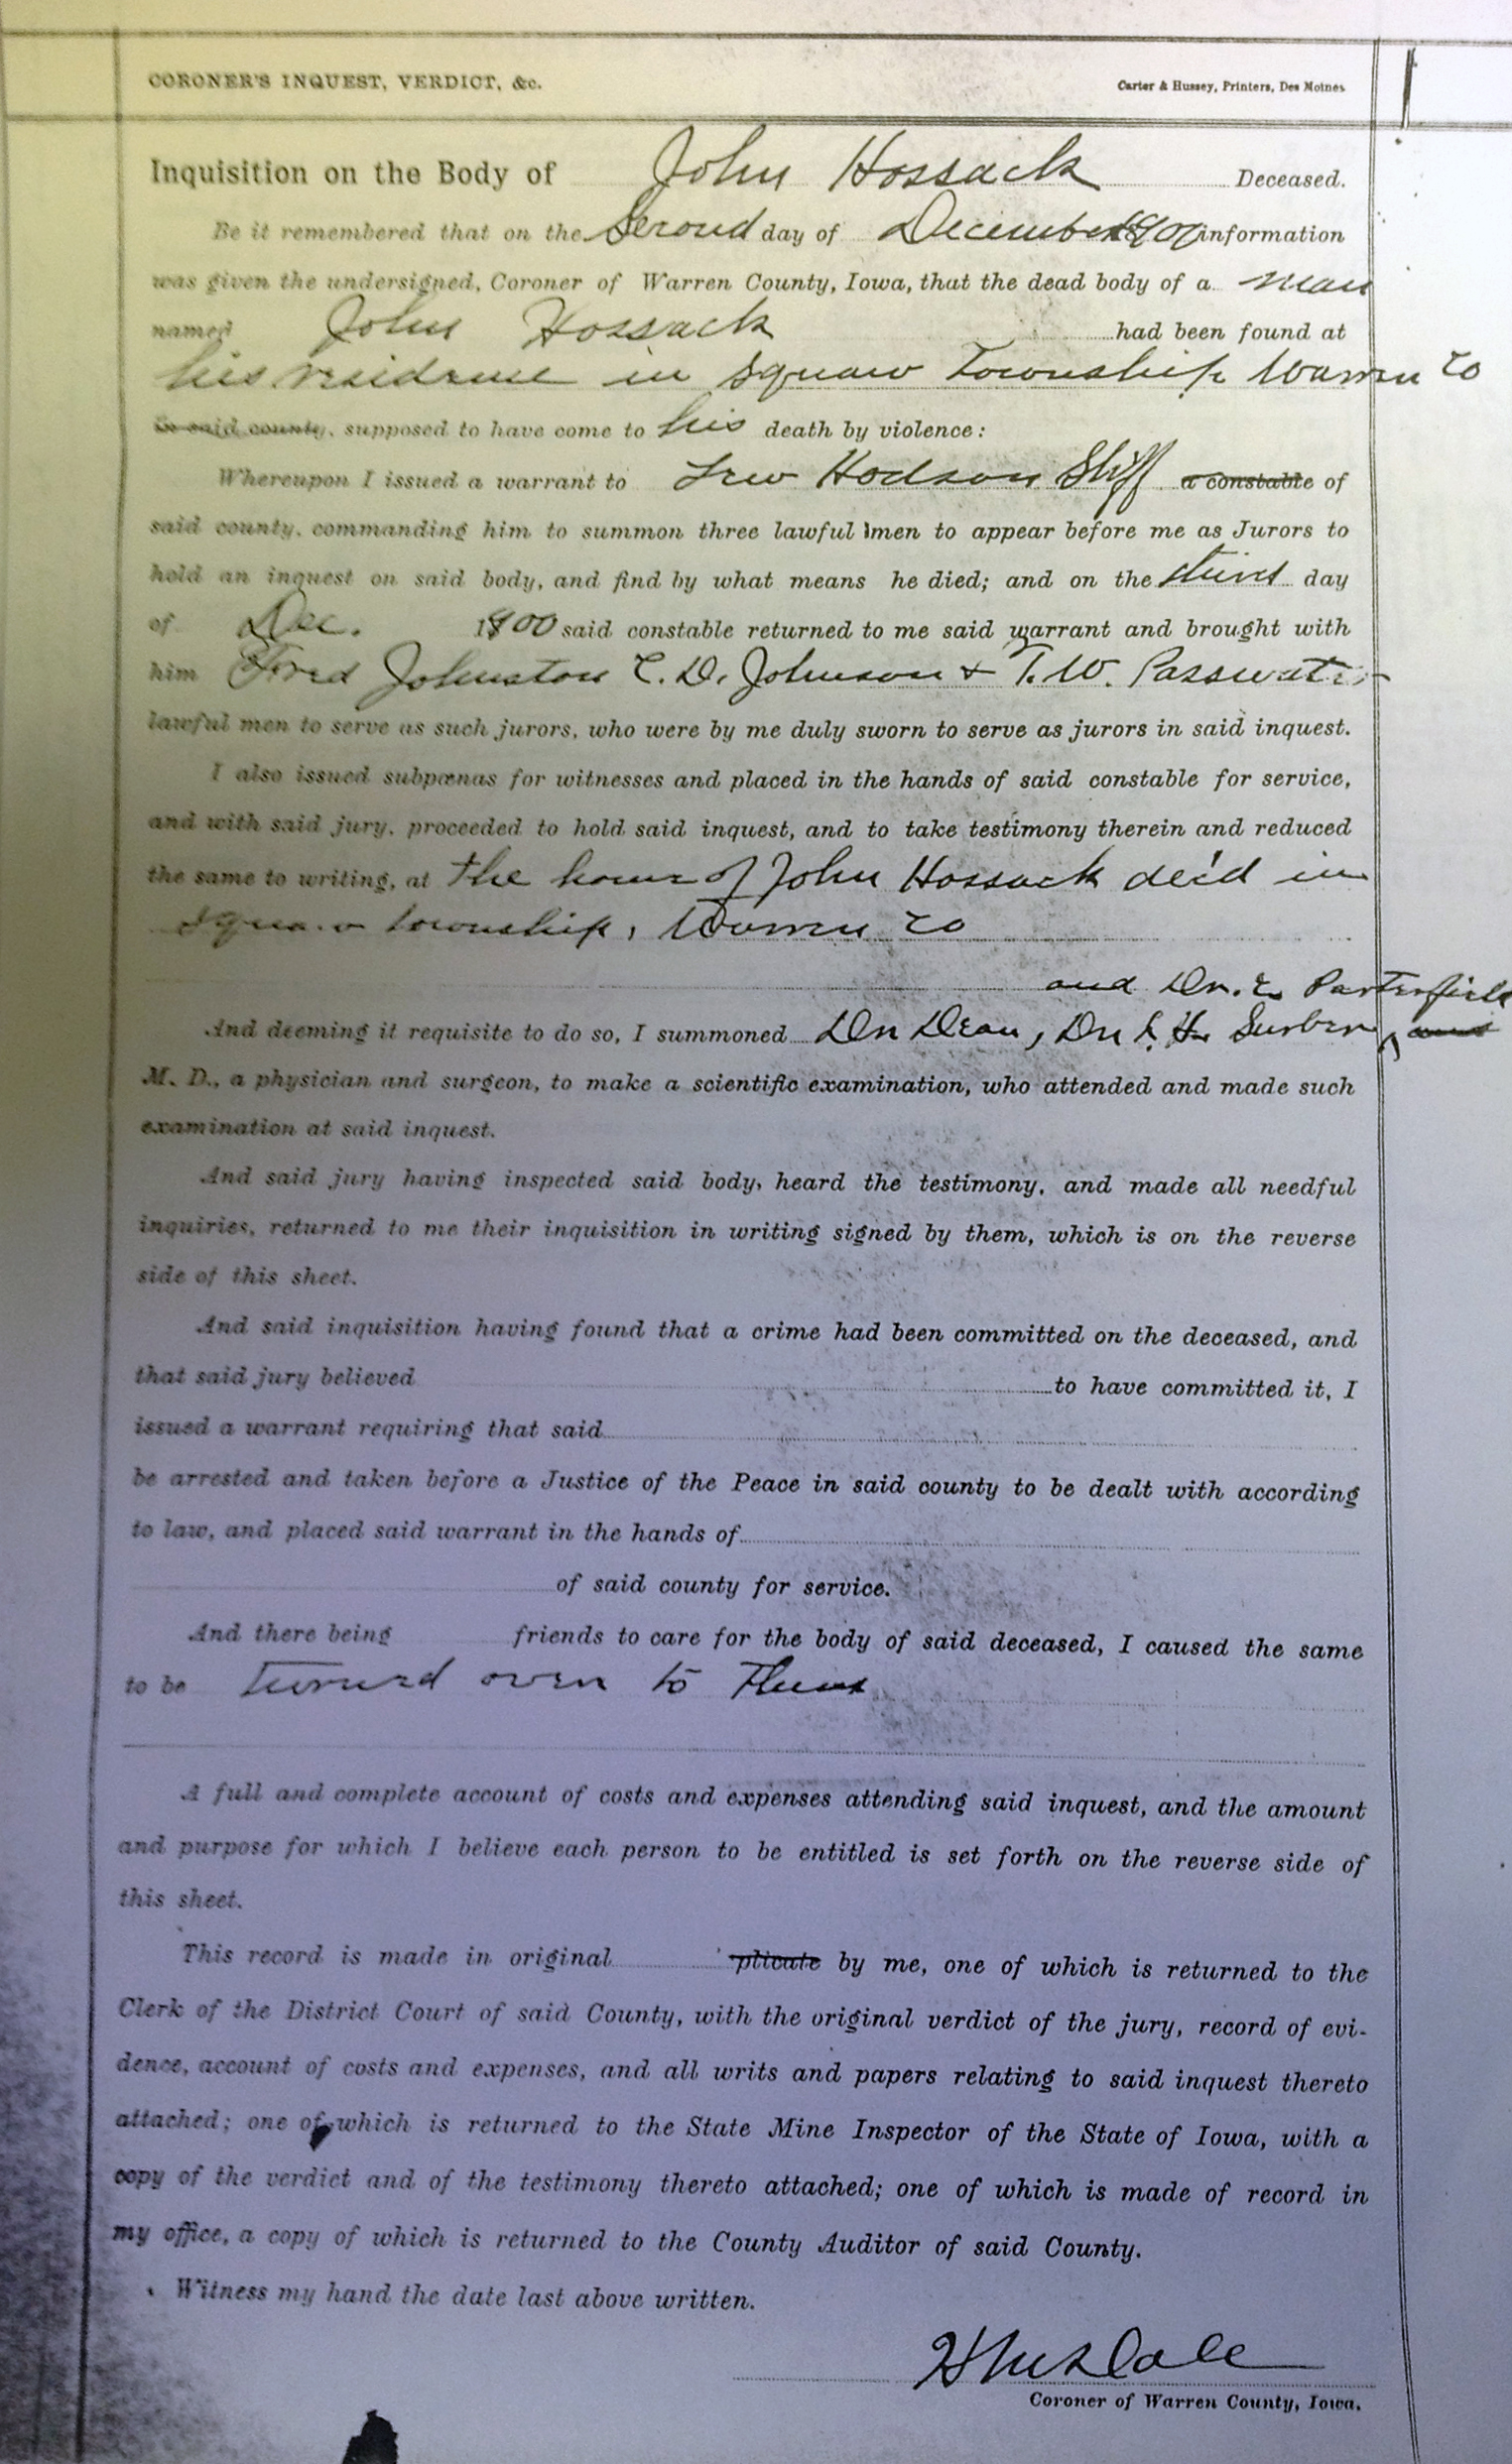 CORONER'S INQUEST, VERDICT, &c. Carter & Hussey, Printers, Des Moines
Inquisition on the Body of John Hossack Deceased.
Be it remembered that on the Second day of December 1900 information
was given the undersigned, Coroner of Warren County, Iowa, that the dead body of a man
named John Hossack had been found at
his residence in Squaw Township Warren Co
in said county, supposed to have come to his death by violence:
Whereupon I issued a warrant to Lew Hodson Shff a constable of
said county, commanding him to summon three lawful men to appear before me as Jurors to
hold an inquest on said body, and find by what means he died; and on the third day
of Dec. 1900 said constable returned to me said warrant and brought with
him Fred Johnston C. D. Johnson & T. W. Passwater
lawful men to serve as such jurors, who were by me duly sworn to serve as jurors in said inquest.
I also issued subpœnas for witnesses and placed in the hands of said constable for service,
and with said jury, proceeded to hold said inquest, and to take testimony therein and reduced
the same to writing, at the home of John Hossack dec'd in
Squaw township, Warren Co
and Dr. E Porterfield
And deeming it requisite to do so, I summoned Dr Dean, Dr L. H. Surber, and
M. D., a physician and surgeon, to make a scientific examination, who attended and made such
examination at said inquest.
And said jury having inspected said body, heard the testimony, and made all needful
inquiries, returned to me their inquisition in writing signed by them, which is on the reverse
side of this sheet.
And said inquisition having found that a crime had been committed on the deceased, and
that said jury believed to have committed it, I
issued a warrant requiring that said
be arrested and taken before a Justice of the Peace in said county to be dealt with according
to law, and placed said warrant in the hands of
of said county for service.
And there being friends to care for the body of said deceased, I caused the same
to be turned over to them
A full and complete account of costs and expenses attending said inquest, and the amount
and purpose for which I believe each person to be entitled is set forth on the reverse side of
this sheet.
This record is made in original plicate by me, one of which is returned to the
Clerk of the District Court of said County, with the original verdict of the jury, record of evi-
dence, account of costs and expenses, and all writs and papers relating to said inquest thereto
attached; one of which is returned to the State Mine Inspector of the State of Iowa, with a
copy of the verdict and of the testimony thereto attached; one of which is made of record in
my office, a copy of which is returned to the County Auditor of said County.
Witness my hand the date last above written.
Dale
Coroner of Warren County, Iowa.